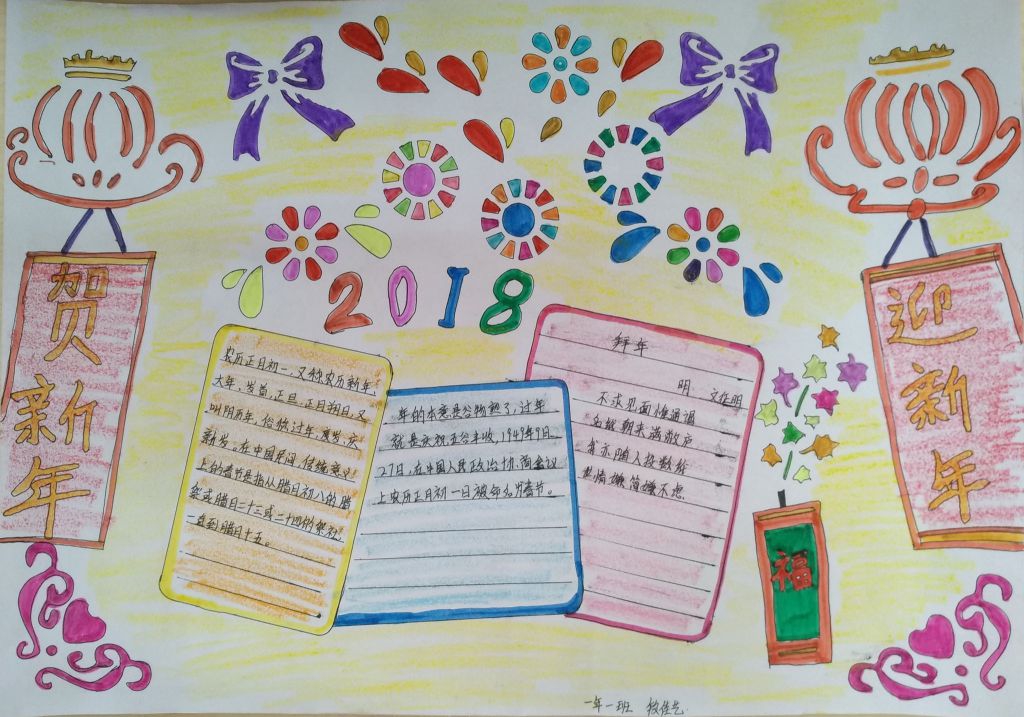 贺新年
2018
迎新年
农历正月初一,又称农历新年,
大年,岁首,正旦,正月朔日,又
叫阴历年,俗称过年,度岁,庆
新岁。在中国民间,传统意义
上的春节是指从腊月初八的腊
祭或腊月二十三或二十四的祭祀,
一直到腊月十五。
年的本意是谷物熟了,过年
就是庆祝五谷丰收,1949年9月
27日,在中国人民政治协商会议
上农历正月初一日被命名为春节。
拜年
明 文征明
不求见面惟通谒
名纸朝来满敝庐
我亦随人投数纸
世情嫌简嫌不虑
福
一年一班